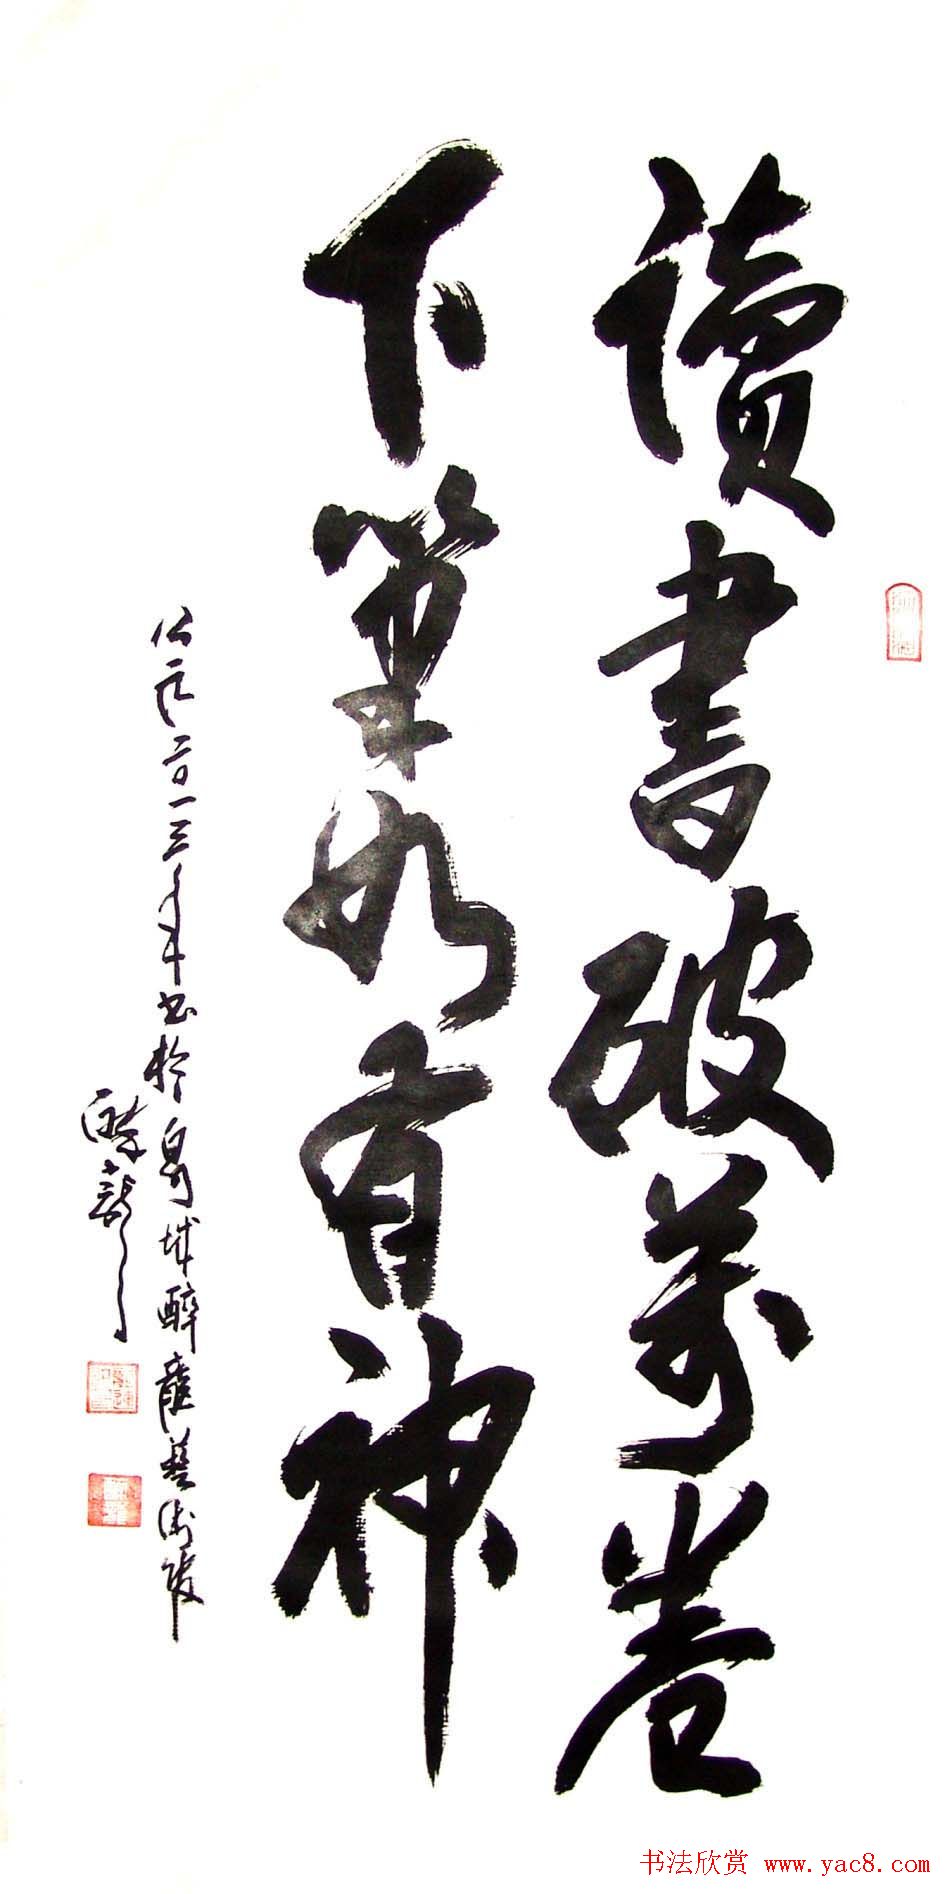 讀書破萬卷
下筆如有神
公元二〇一三年书於泉城醉龍藝術
醉龍
书法欣赏 www.yac8.com